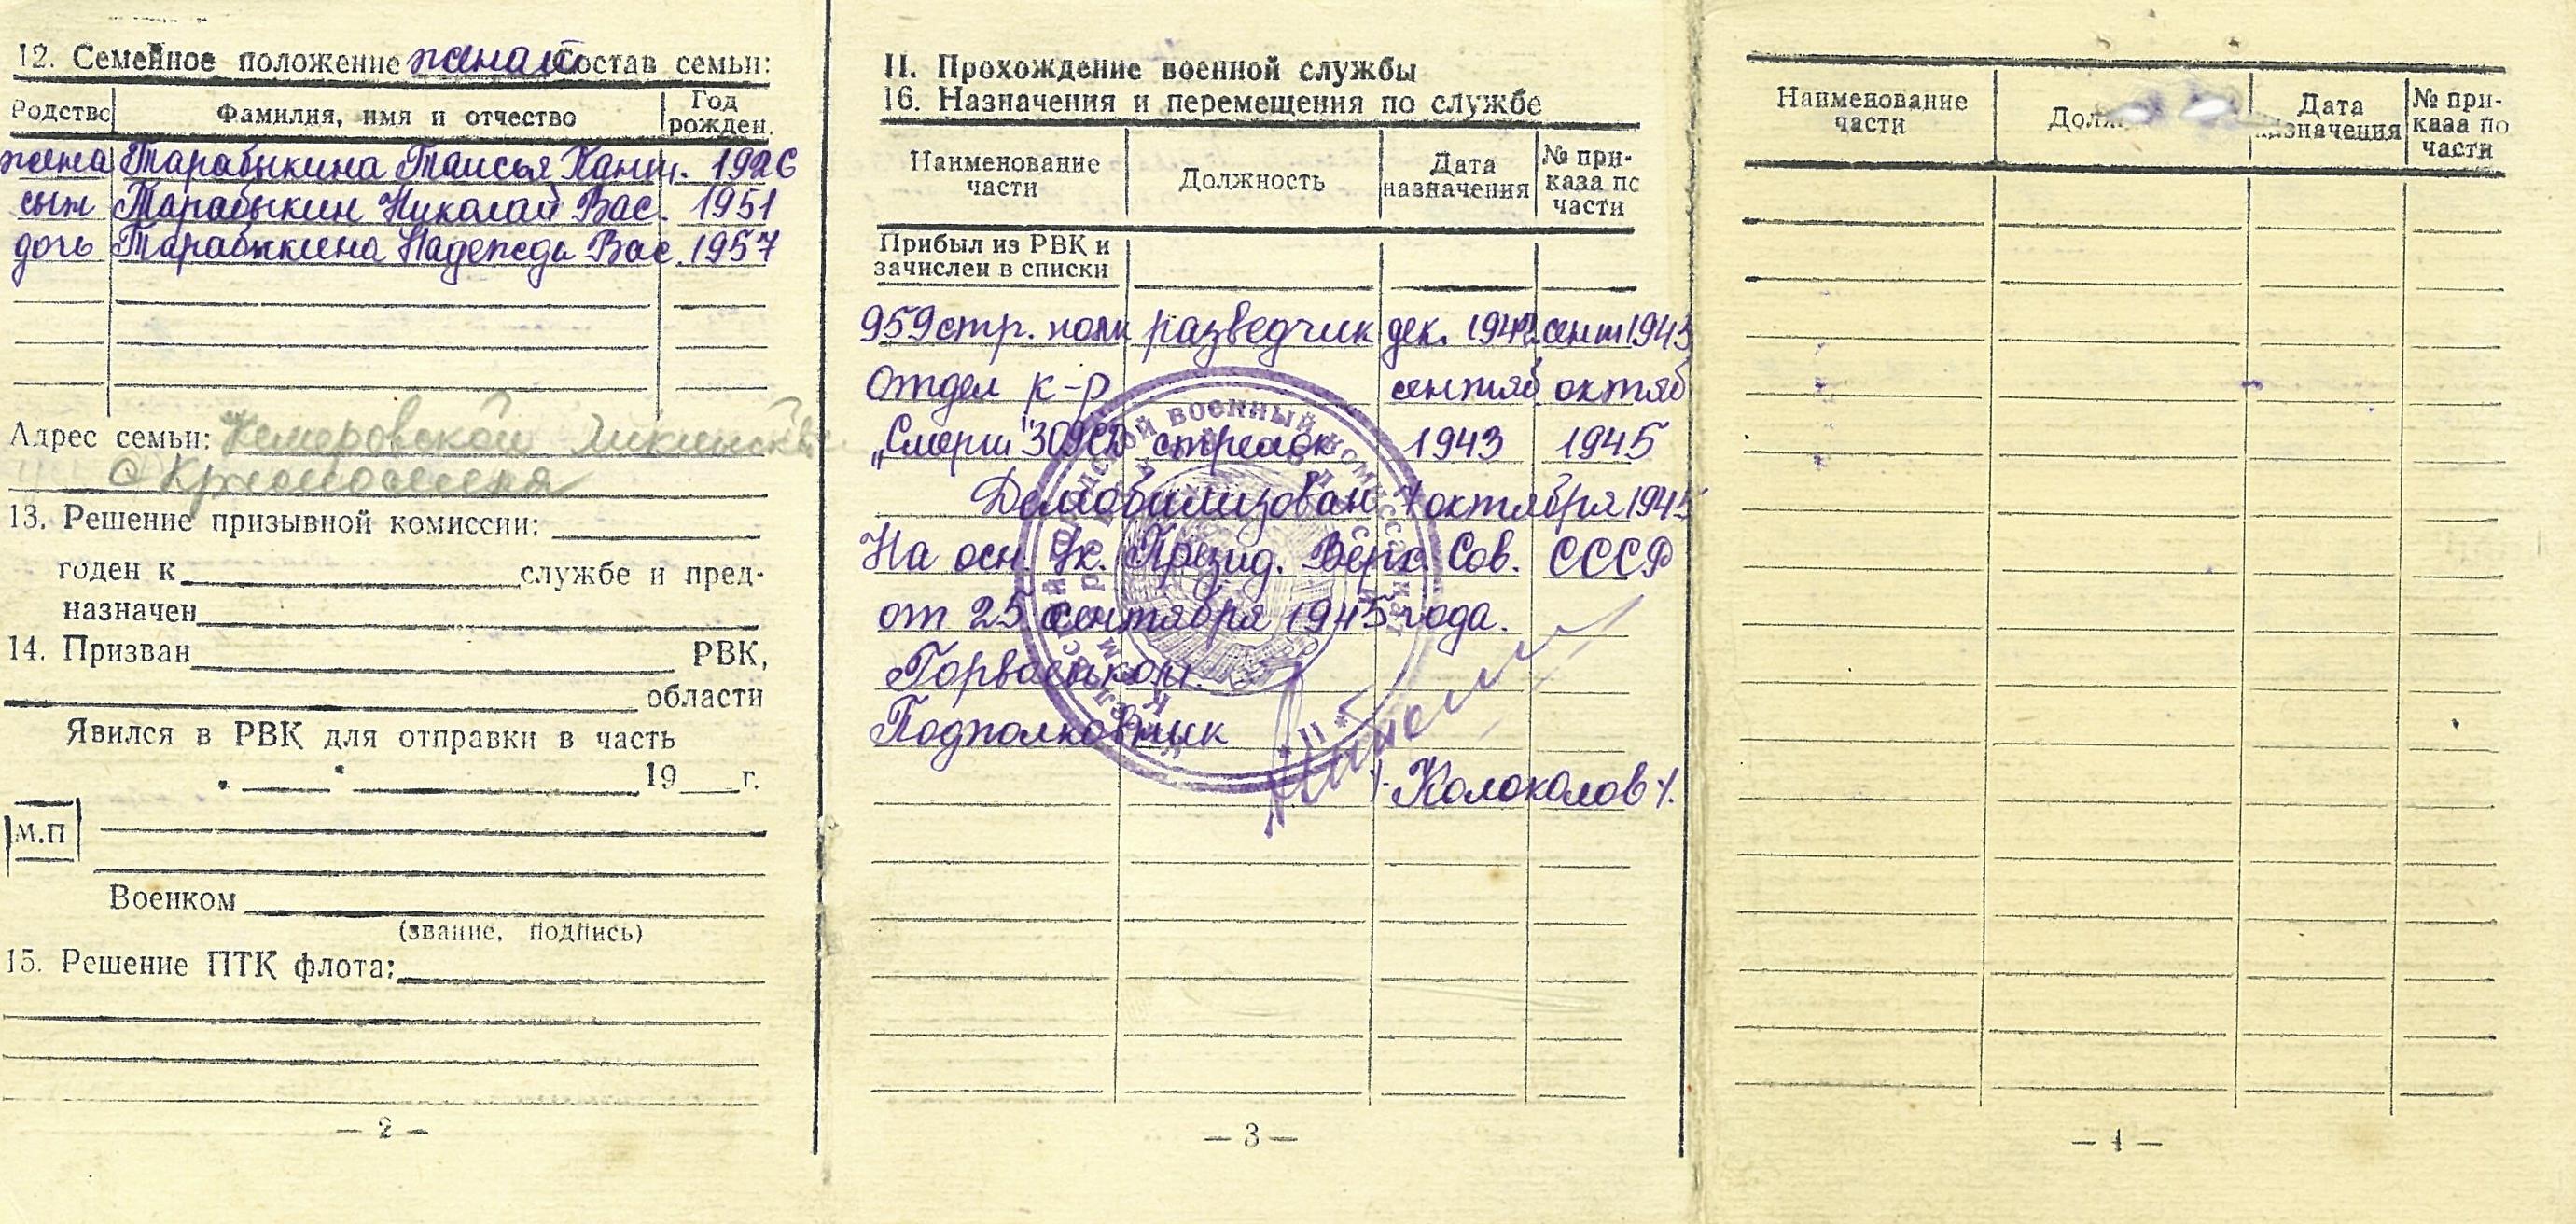 12. Семейное положение женат Состав семьи:
Родство Фамилия, имя и отчество Год рожден.
жена Тарабыкина Таисья 1926
сын Тарабыкин Николай Вас. 1951
дочь Тарабыкина Надежда Вас. 1957
Адрес семьи: Кемеровской
13. Решение призывной комиссии:
годен к службе и пред-
назначен
14. Призван РВК,
области
Явился в РВК для отправки в часть
" " 19 г.
М.П
Военком
(звание, подпись)
15. Решение ПТК флота:
— 2 —
II. Прохождение военной службы
16. Назначения и перемещения по службе
Наименование части Должность Дата назначения № при- каза по части
Прибыл из РВК и
зачислен в списки
959 стр. полк разведчик дек. 1942 сент 1943
Отдел к-р сентяб октяб
„Смерш" 309СД стрелок 1943 1945
Демобилизован 7 октября 1945
На осн. Ук. Презид. Верх. Сов. СССР
от 25 сентября 1945 года.
Горвоенком
Подполковник
/. Колоколов /.
— 3 —
Наименование части Дата назначения № при- каза по части
— 4 —